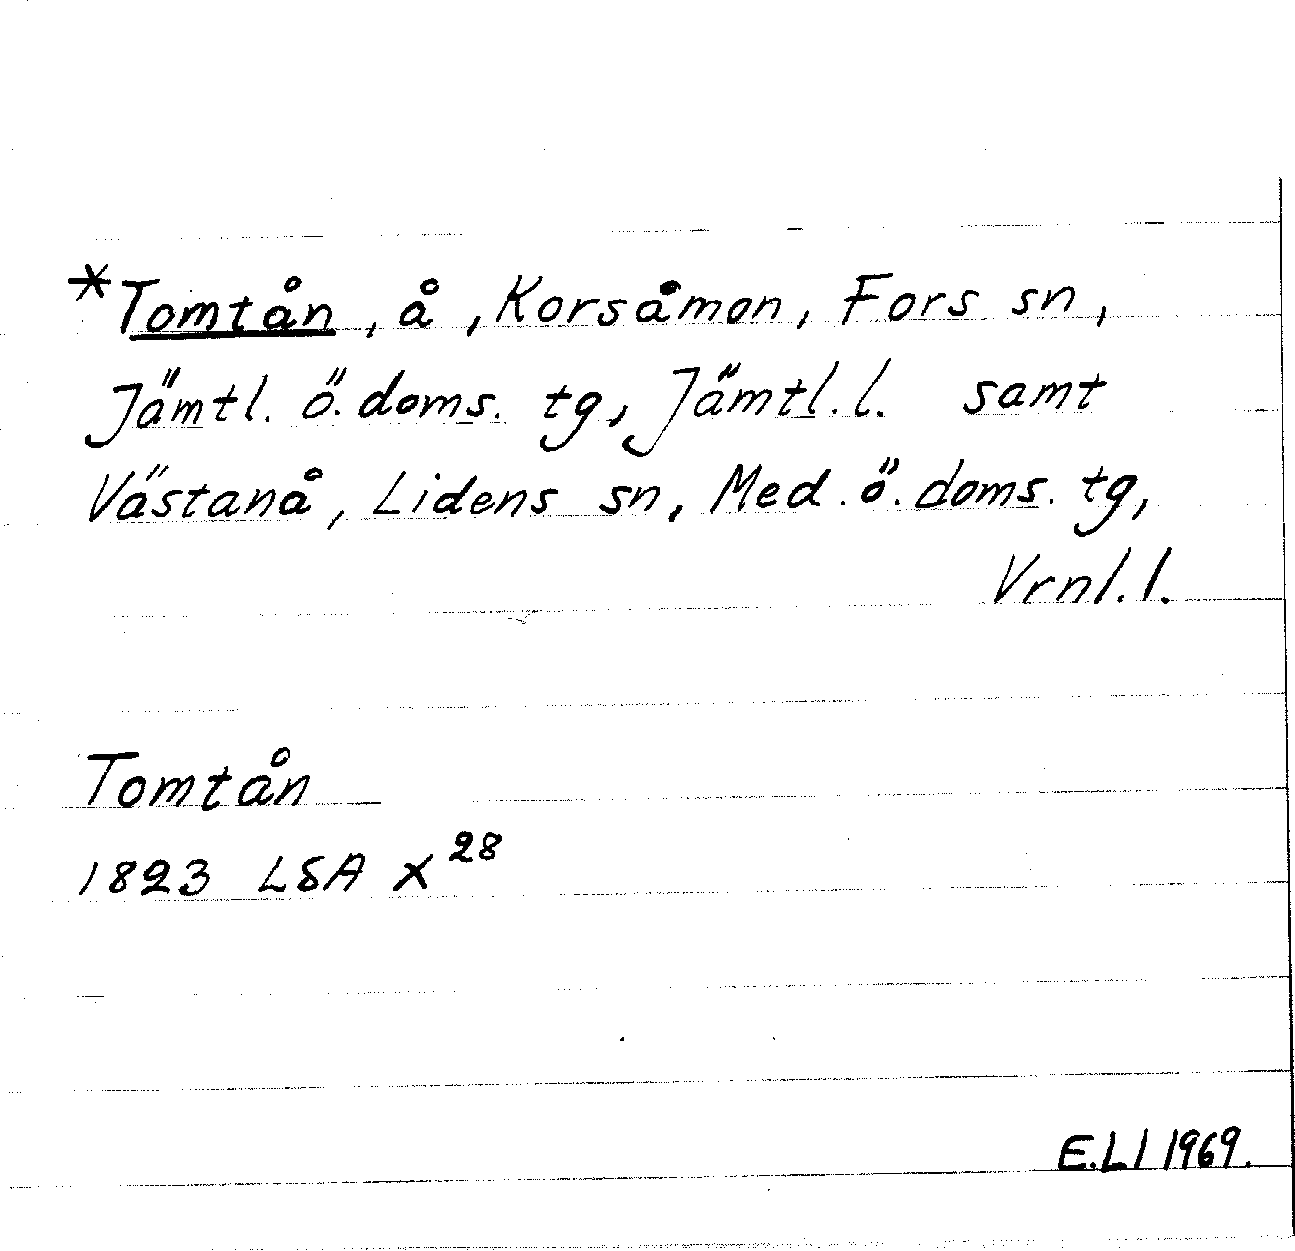 *Tomtån, å, Korsåmon, Fors sn,
Jämtl. ö. doms. tg, Jämtl. l. samt
Västanå, Lidens sn, Med. ö. doms. tg,
Vrnl. l.
Tomtån
1823 LSA X 28
E.LI 1969.